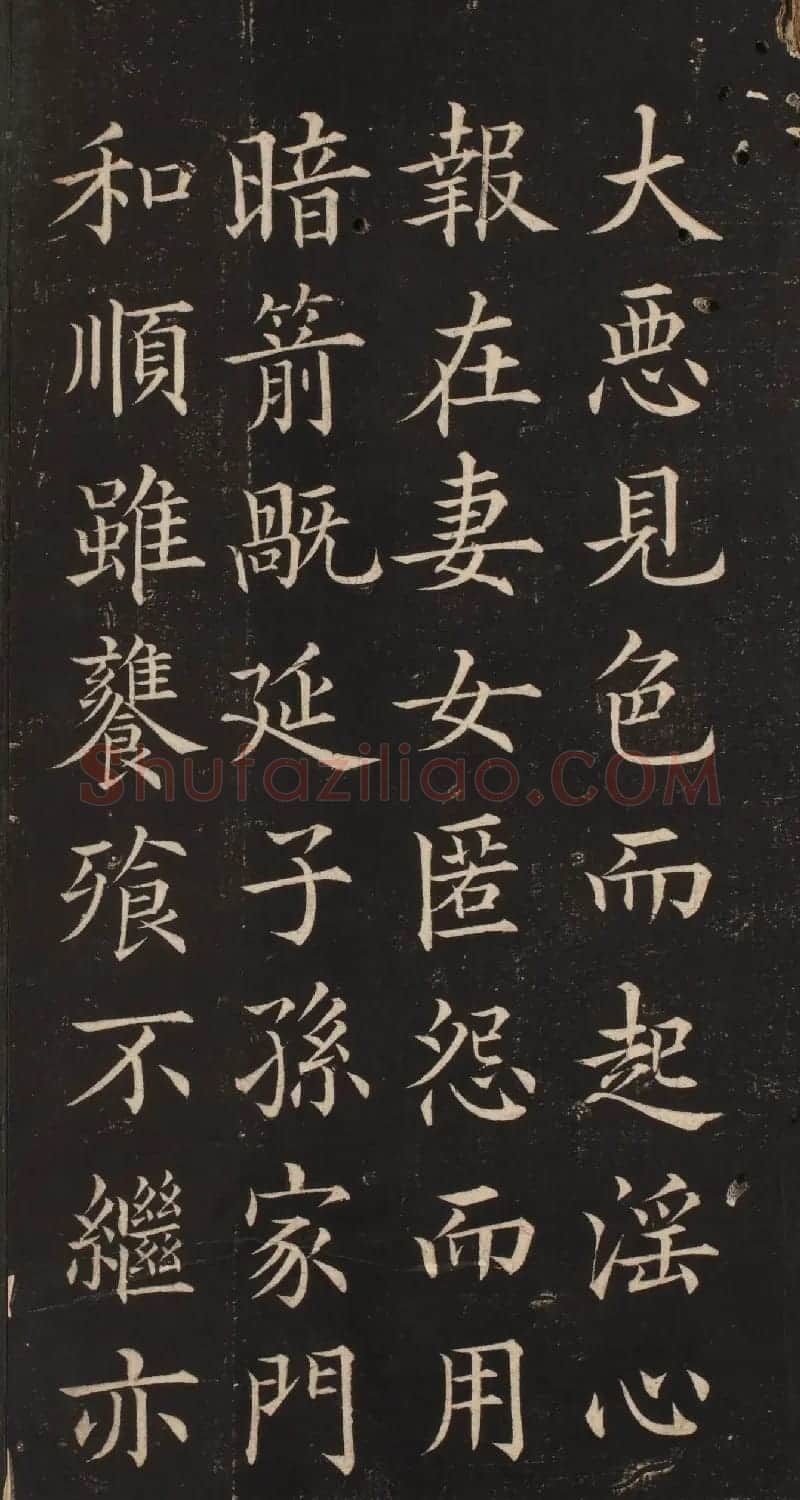 大悪見色而起滛心
報在妻女匿怨而用
暗箭旤延子孫家門
和順雖饔飱不繼亦
Shufaziliao.COM